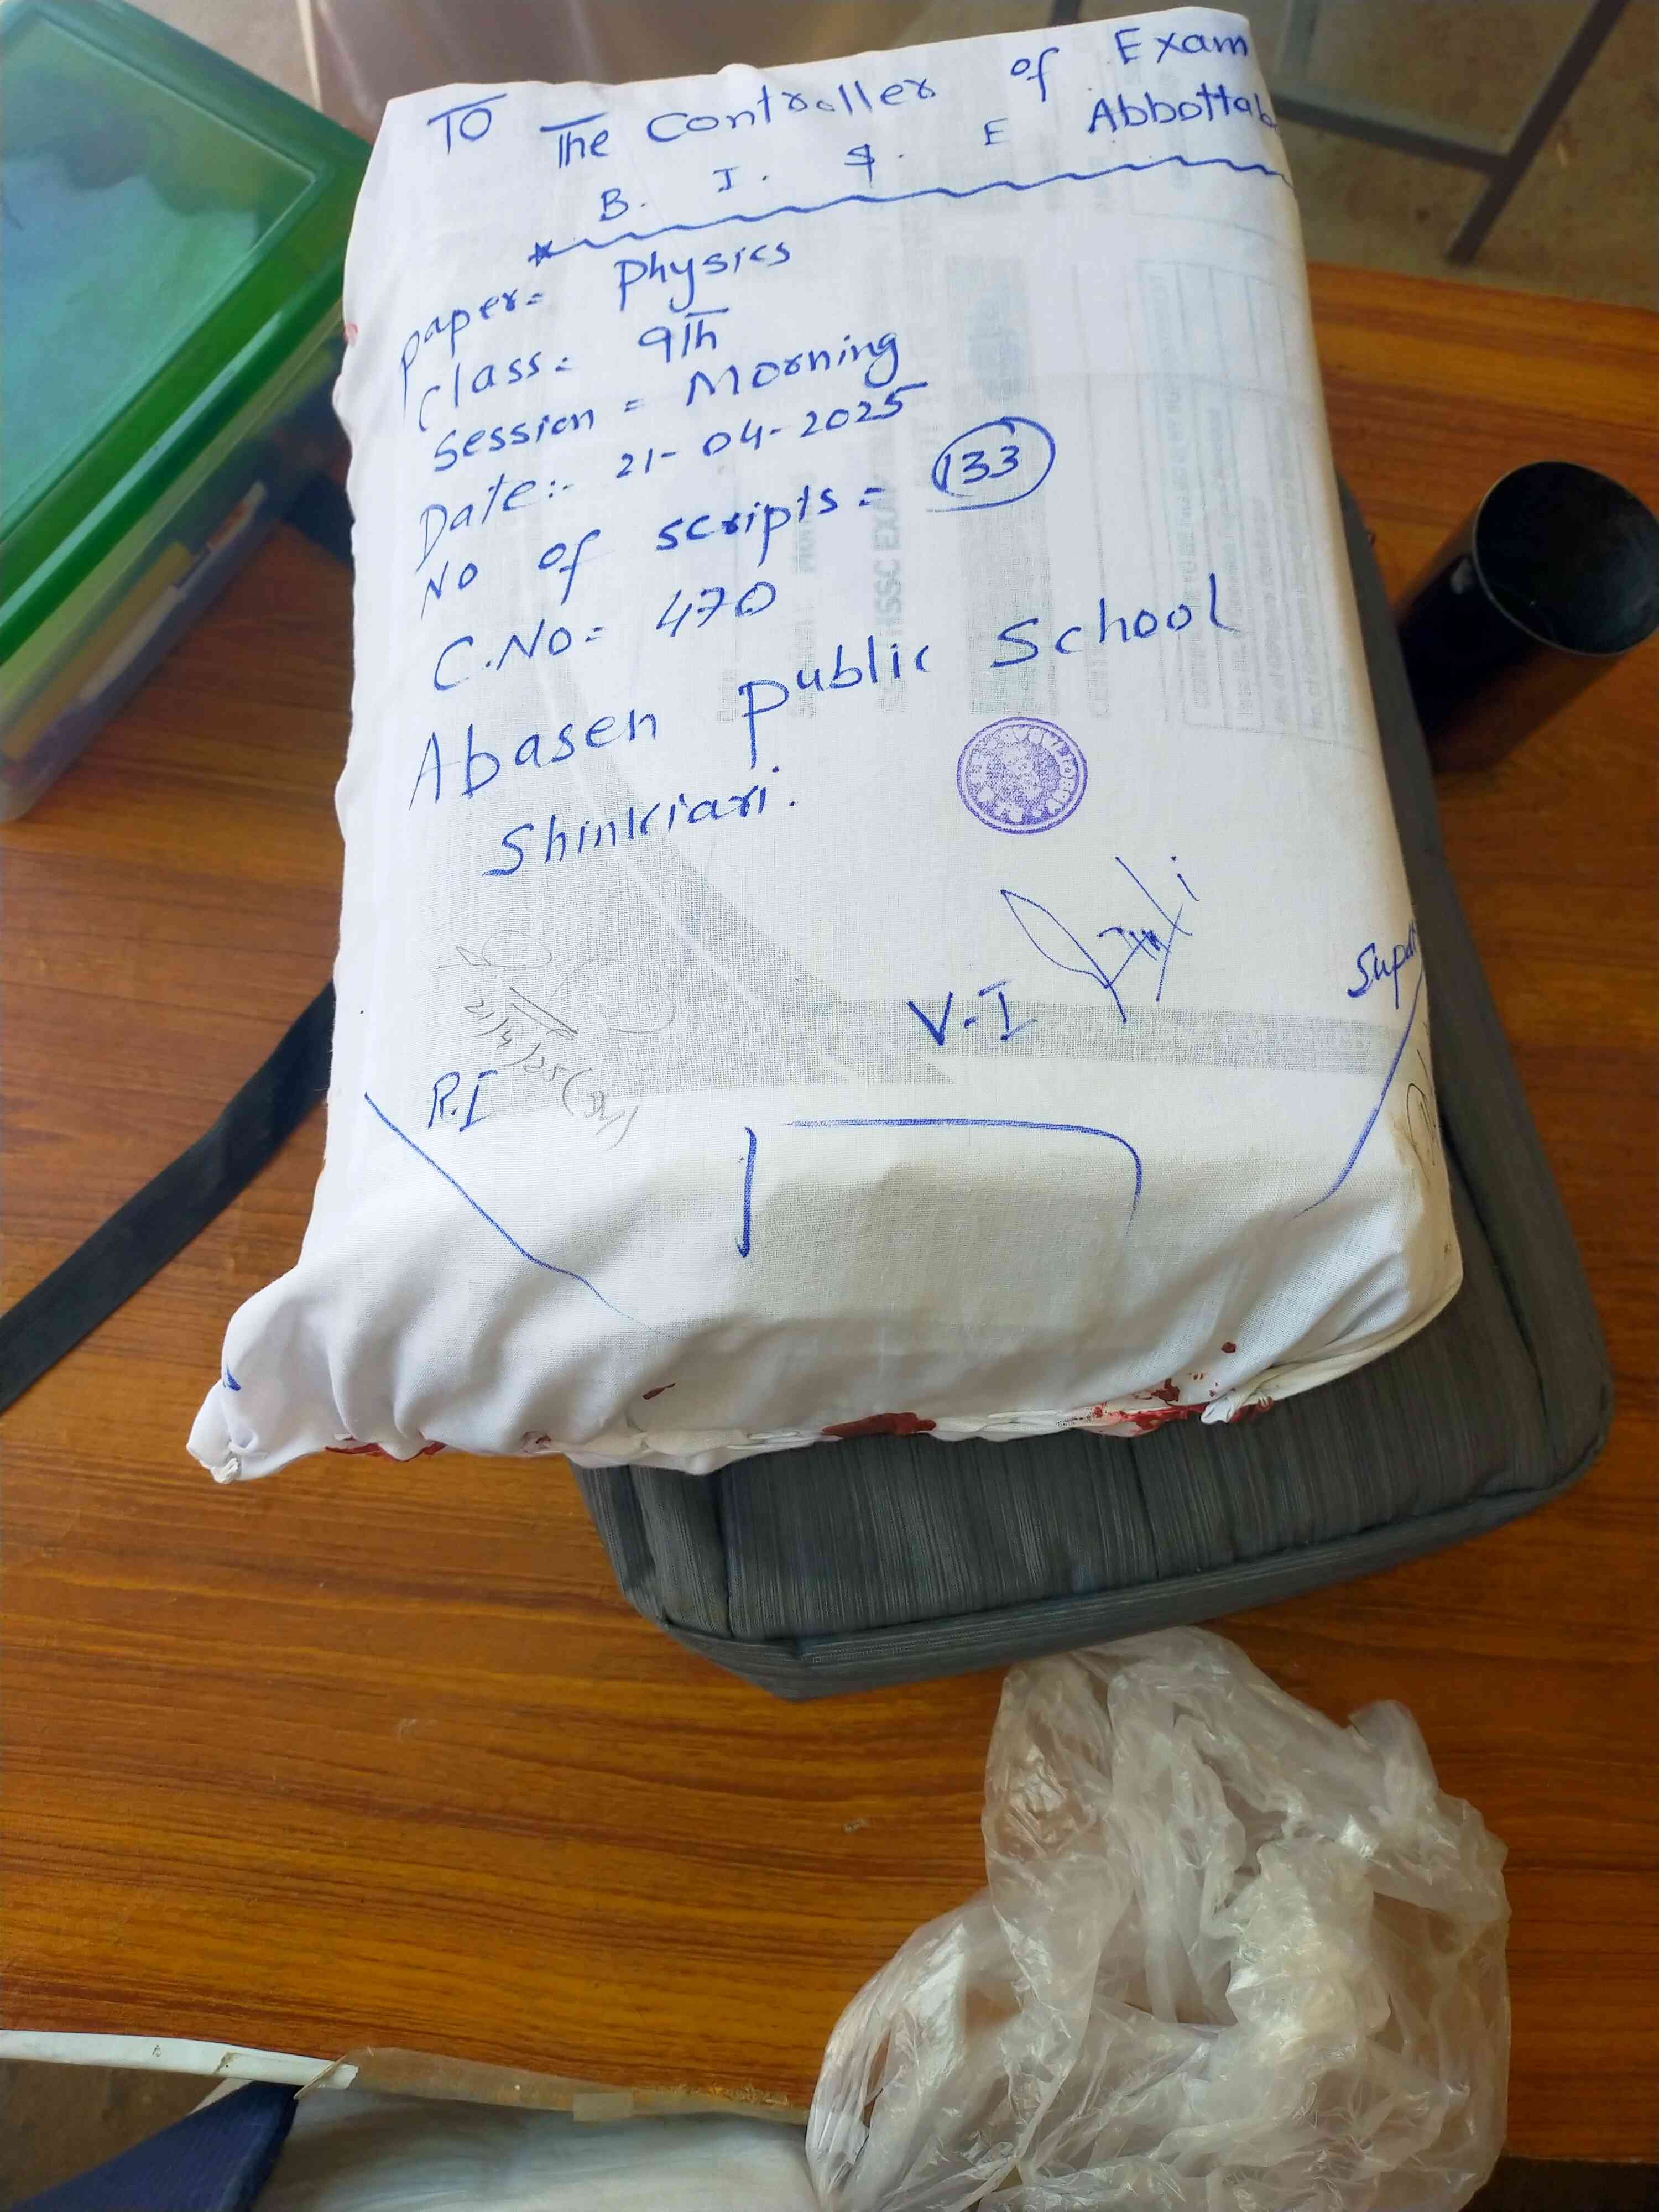 TO
The Controller of Exam
B. I. S. E Abbottab
Paper= Physics
Class= 9Th
Session = Morning
Date:- 21-04-2025
No of scripts = 133
C.No= 470
Abasen Public School
Shinkiari.
V-I
Supdt
21/4/25
R.I
HSSC EXA